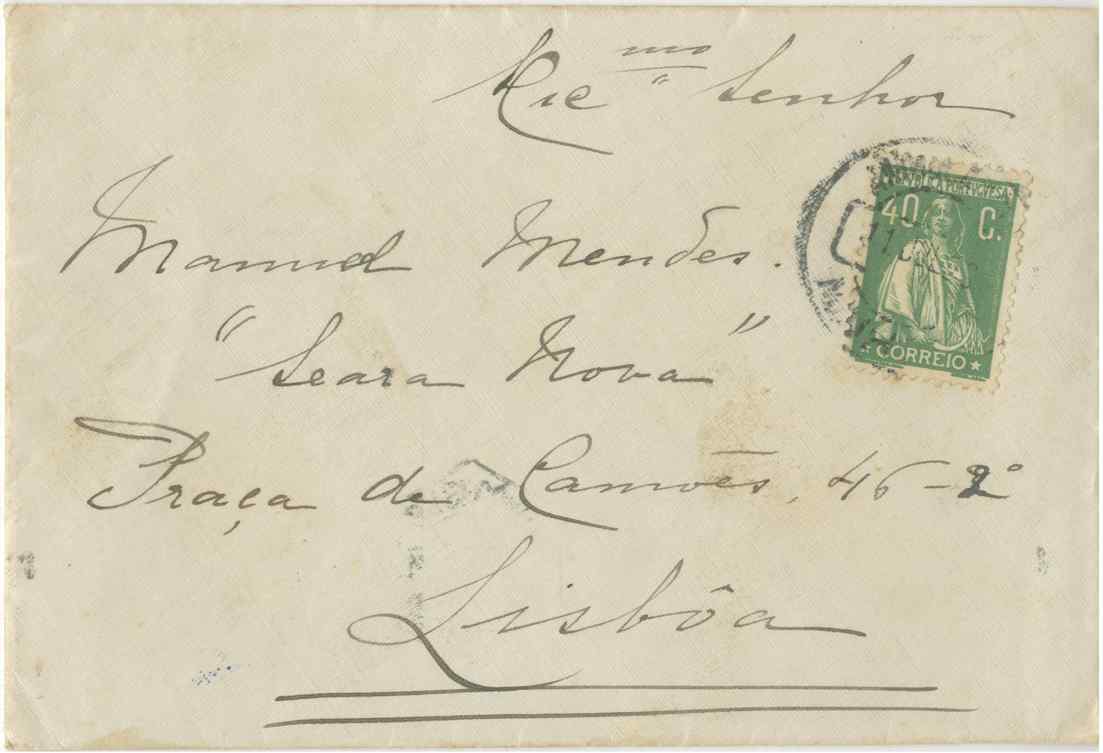 mo
Exc " Senhor
REPUBLICA PORTUGUESA
40 C.
CORREIO
Manuel Mendes.
"Seara Nova"
Praça de Camões, 46-2º
Lisbôa